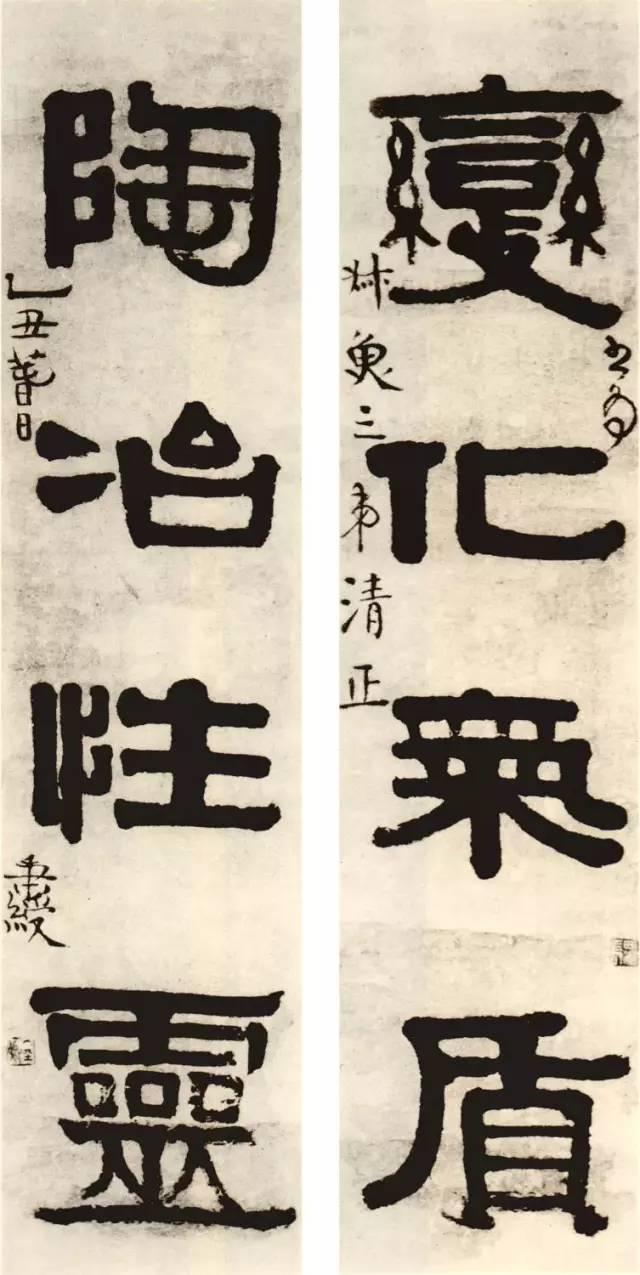 變化氣質
書為
奐三弟清正
陶冶性靈
乙丑萅日
秉綬